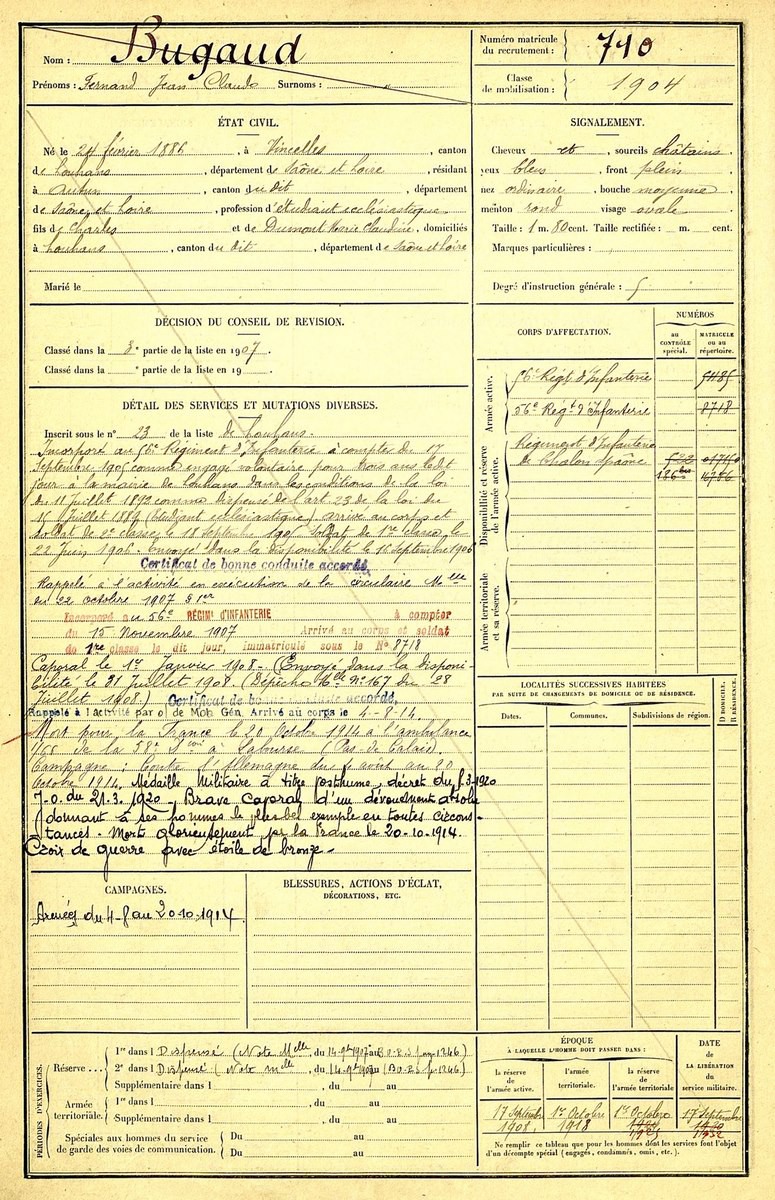 Nom : Bugaud
Prénoms : Fernand Jean Claude Surnoms : "
Numéro matricule du recrutement : 710
Classe de mobilisation : 1904
ÉTAT CIVIL.
Né le 24 février 1886, à Vincelles, canton
de Louhans, département de Saône et Loire, résidant
à Autun, canton du dit, département
de Saône et Loire, profession d'étudiant ecclésiastique
fils de Charles et de Dumont Marie Claudine, domiciliés
à Louhans, canton du dit, département de Saône et Loire
Marié le
SIGNALEMENT.
Cheveux et, sourcils châtains,
yeux bleus, front plein
nez ordinaire, bouche moyenne
menton rond visage ovale
Taille : 1 m. 80 cent. Taille rectifiée : m. cent.
Marques particulières :
Degré d'instruction générale : 5
DÉCISION DU CONSEIL DE REVISION.
Classé dans la 3e partie de la liste en 1907.
Classé dans la e partie de la liste en 19
DÉTAIL DES SERVICES ET MUTATIONS DIVERSES.
Inscrit sous le n° 23 de la liste de Louhans.
Incorporé au 56e Régiment d'Infanterie à compter du 17
Septembre 1905 comme engagé volontaire pour trois ans ledit
jour à la mairie de Louhans dans les conditions de la loi
du 11 Juillet 1892 comme dispensé de l'art 23 de la loi du
15 Juillet 1889 (Etudiant ecclésiastique) arrivé au corps et
soldat de 2e classe le 18 septembre 1905. Soldat de 1re classe le
22 Juin 1906. Envoyé dans la disponibilité le 18 Septembre 1906
Certificat de bonne conduite accordé,
Rappelé à l'activité en exécution de la circulaire Mlle
du 22 octobre 1907 § 1er
Incorporé au 56e RÉGIMt D'INFANTERIE à compter
du 15 Novembre 1907 Arrivé au corps et soldat
de 1re classe le dit jour, immatriculé sous le N° 8718
Caporal le 1er Janvier 1908. (Envoyé dans la disponi-
bilité le 31 Juillet 1908. (Dépêche Mlle N° 167 du 28
Juillet 1908.) Certificat de bonne conduite accordé,
Rappelé à l'activité par o de Mob Gén. Arrivé au corps le 4-8-14.
Mort pour la France le 20 Octobre 1914 à l'ambulance
de la 58e Don à Labourse (Pas-de-Calais).
Campagne : Contre l'Allemagne du 4 août au 20
Octobre 1914. Médaille Militaire à titre posthume, décret du 3-1920
J.O. du 21.3.1920. Brave caporal d'un dévouement absolu
donnant à ses hommes le plus bel exemple en toutes circons-
tances. Mort glorieusement pr la France le 20-10-1914.
Croix de guerre avec étoile de bronze.
CORPS D'AFFECTATION.
NUMÉROS
au CONTRÔLE spécial.
MATRICULE ou au répertoire.
Armée active.
56e Régt d'Infanterie 5485
56e Régt d'Infanterie 8718
Disponibilité et réserve de l'armée active.
Régiment d'Infanterie
de Chalon s/Saône
Armée territoriale et sa réserve.
LOCALITÉS SUCCESSIVES HABITÉES
PAR SUITE DE CHANGEMENTS DE DOMICILE OU DE RÉSIDENCE.
Dates. Communes. Subdivisions de région. D DOMICILE. R RÉSIDENCE.
CAMPAGNES.
Armées du 4-8 au 20-10-1914.
BLESSURES, ACTIONS D'ÉCLAT,
DÉCORATIONS, ETC.
PÉRIODES D'EXERCICES.
Réserve... 1re dans l Dispensé (Note Melle, du 14-9bre 1907 au B.O. 23 p. 1246)
2e dans l Dispensé (Note Melle, du 14-9bre 1907 au B.O. 23 p. 1246)
Supplémentaire dans l , du au
Armée territoriale. 1re dans l , du au
Supplémentaire dans l , du au
Spéciales aux hommes du service de garde des voies de communication. Du au
Du au
ÉPOQUE
À LAQUELLE L'HOMME DOIT PASSER DANS :
la réserve de l'armée active. l'armée territoriale. la réserve de l'armée territoriale
DATE DE LA LIBÉRATION du service militaire.
17 Septembre 1908. 1er Octobre 1918 1er Octobre 17 Septembre
Ne remplir ce tableau que pour les hommes dont les services font l'objet
d'un décompte spécial (engagés, condamnés, omis, etc.).